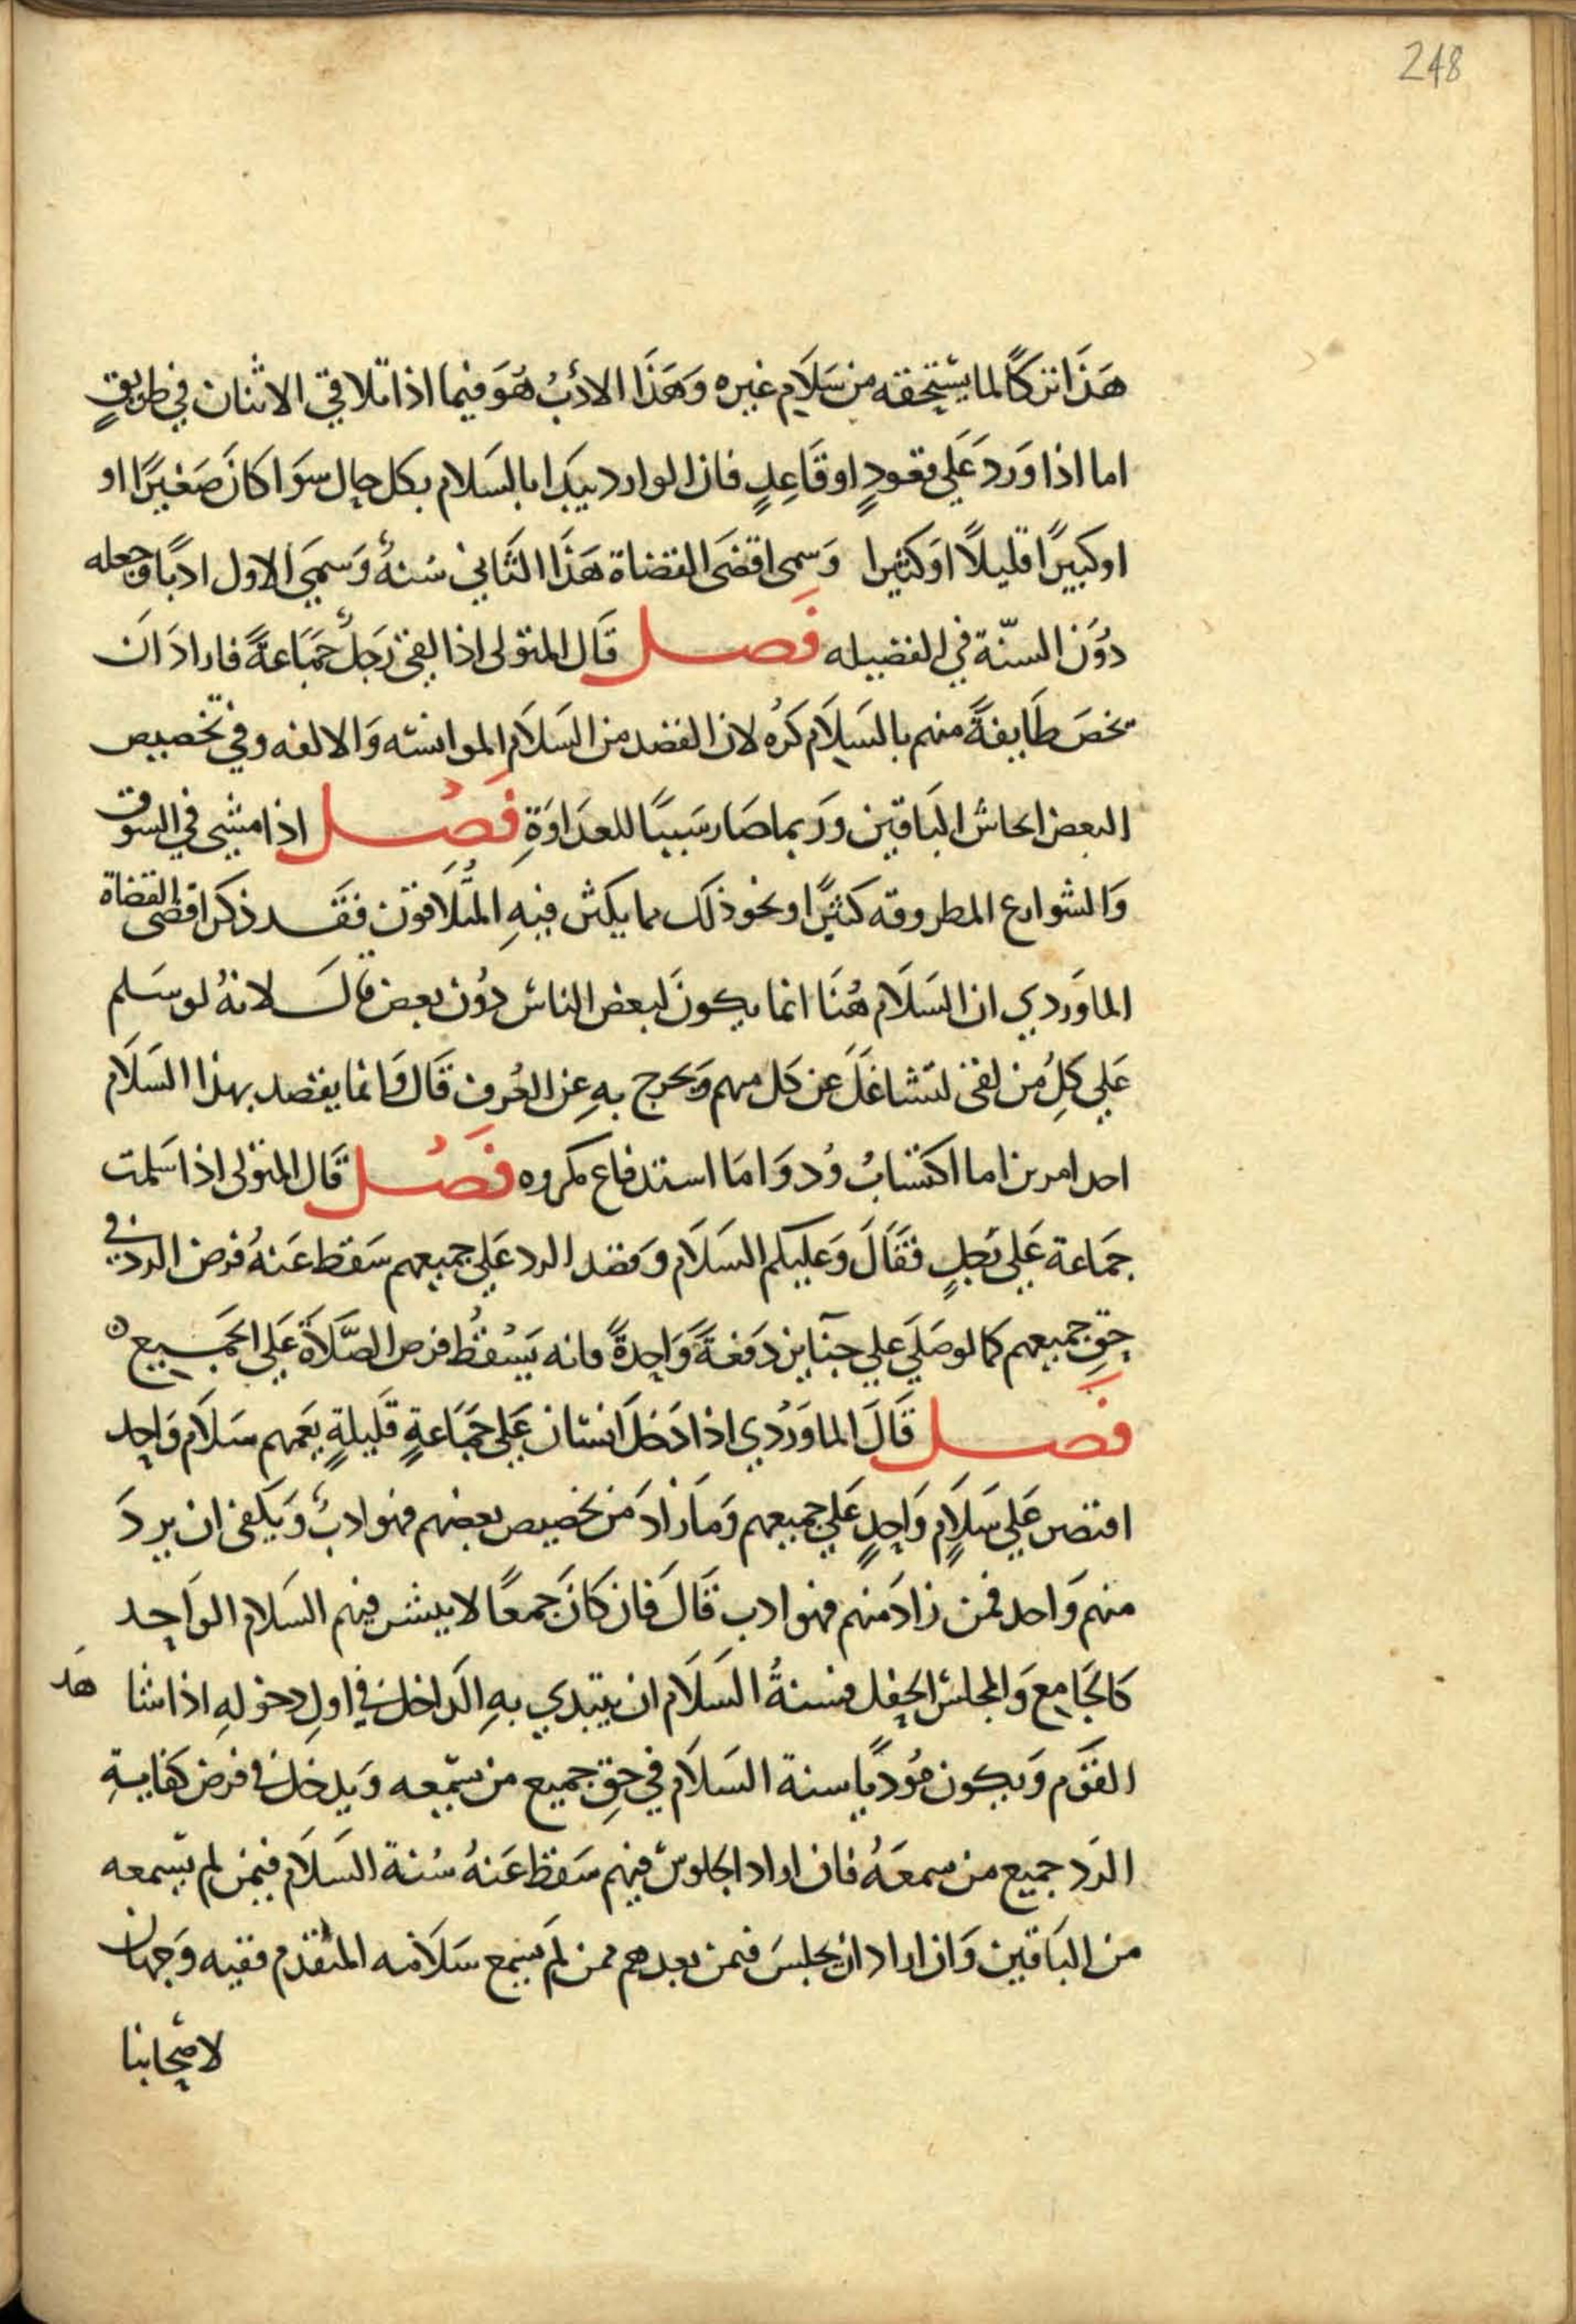 248
هَذَا تركًا لما يستحقه من سَلَامِ غيره وَهَذَا الادَبُ هُوَ فيما اذا تلاقي الاثنان في طريقٍ
اما اذا وَرَد عَلَي قعودٍ او قَاعِدٍ فان الوارد يبَدا بالسَلام بكل حال سوَا كانَ صَغيرًا او
او كبيرًا قليلًا اوَ كثيرا وَسمي اقضَي القضاة هَذَا الثَاني سُنةً وَسميَ الاول ادبًا وجعله
دوُنَ السنّة في الفضيله فَصل قَال المتولي اذا لقي رَجلٌ جَمَاعةً فارادَ اَن
يخصَ طَايفةً منهم بالسَلَام كَرُه لان القصد من السَلَام الموانسَه وَالالفه وفي تخصيص
البعض ايحاش البَاقين ورَبما صَار سَببًا للعدَاوَةِ فَصْل اذا مشي في السوق
وَالشوارع المطروقه كثيرًا ونحو ذلك مما يكثر فيهِ المتُلَاقون فقَد ذكر اقضي القضاة
الماوَردي ان السَلَام هُنَا انما يكونَ لبعض الناس دوُن بعض قال لانهُ لو سَلم
عَلي كلِ مُن لقي لتشاغَلَ عن كل مهم وَيخرج بهِ عن العُرف قَال وَانما يقصد بهذا السَلَام
احد امرين اما اكتسَابُ وُد وَامَا استدفاع مكروه فَصْل قَال المتولي اذا سَلمت
جمَاعة عَلي رَجلٍ فقَالَ وَعليكم السَلَام وَقصد الرد عَلي جميعهم سَقط عَنهُ فرض الرد في
حقِ جميعهم كما لو صَلَي علي جنَايز دَفعةً وَاحِدةً فانه يَسْقطُ فرض الصَّلَاة عَلي الجَميع
فَصل قَالَ الماوَرْدي اذا دَخلَ انسَان عَلي جَمَاعةٍ قَليلةٍ يعَمهم سَلَام وَاحِد
اقتصر عَلي سَلَامٍ وَاحِدٍ عَلي جميعهم وَمَا زادَ من تخصيص بعضهم فهو ادبٌ وَيكفي ان يردَ
منهم وَاحد فمن زادَ منهم فهو ادب قَالَ فَان كَانَ جمعًا لا ينتشر فيهم السَلَام الوَاحِد
كَالجَامِع وَالمجلس الحفل فسنةُ السَلَام ان يبتدي بهِ الدَاخل في اولِ دخولهِ اذا شا هَد
القَوَم وَيكون مُودّيًا سنة السَلَام في حقِ جميع من سَمعه وَيدخل في فرض كفايةِ
الرَد جميع من سمعَهُ فان اراد الجلوسَ فيهم سَقط عَنهُ سُنة السَلَام فيمن لم يَسمعه
من البَاقين وَان اراد ان يجلسَ فيمن بعدهم ممن لم يَسمع سَلَامَه المتقدم ففيه وَجهان
لاصحابنا